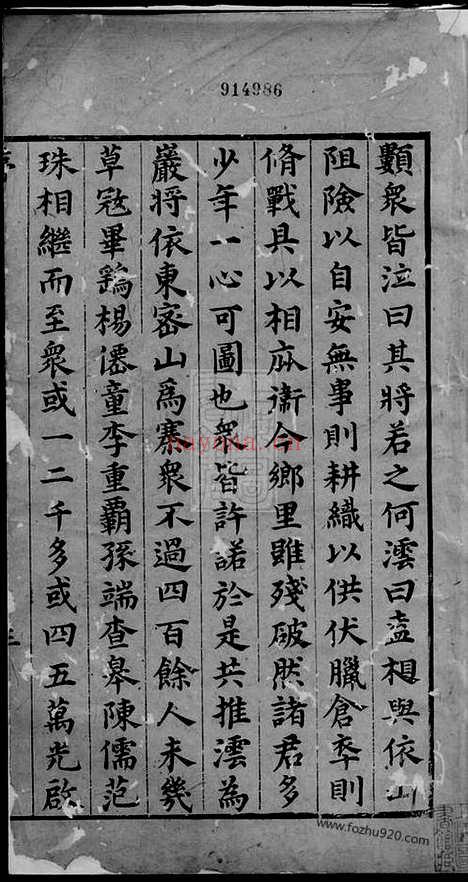 914986
顥衆皆泣曰其將若之何澐曰盍相與依山
阻險以自安無事則耕織以供伏臘倉卒則
脩戰具以相庥衛今鄉里雖殘破然諸君多
少年一心可圖也衆皆許諾於是共推澐為
巖將依東密山爲寨衆不過四百餘人未幾
草寇畢鷂楊僊童李重霸孫端查皋陳儒范
珠相繼而至衆或一二千多或四五萬光啟
nayona.cn
www.fozhu920.com